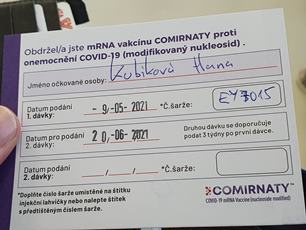 Obdržel/a jste mRNA vakcínu COMIRNATY proti
onemocnění COVID-19 (modifikovaný nukleosid) .
Kubíková Hana
Jméno očkované osoby:
Datum podání
1. dávky: - 9 -05- 2021 *Č.šarže: EY7015
Datum pro podání 2 0. -06- 2021
2. dávky: Druhou dávku se doporučuje
podat 3 týdny po první dávce.
Datum podání
2. dávky: / / *Č.šarže:
*Doplňte číslo šarže umístěné na štítku
injekční lahvičky nebo nalepte štítek
s předtištěným číslem šarže.
COMIRNATY™
COVID-19 mRNA Vaccine (nucleoside modified)